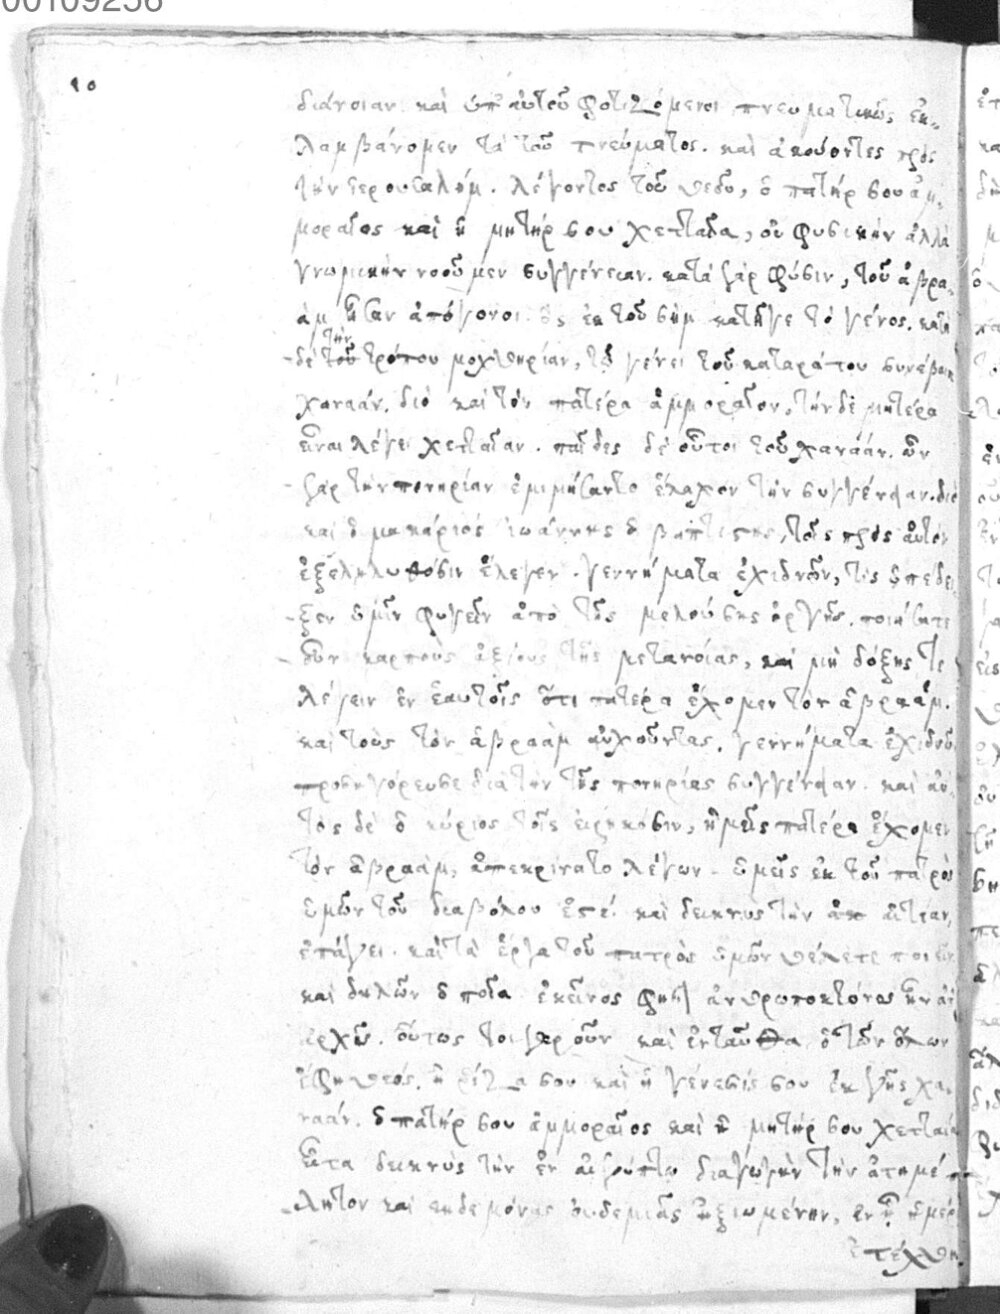 00109256
διάνοιαν· καὶ ὑπ' αὐτοῦ φοτιζόμενοι πνευματικῶς ἐκ-
λαμβάνομεν τὰ τοῦ πνεύματος. καὶ ἀκούοντες πρὸς
τὴν ἱερουσαλήμ. λέγοντος τοῦ θεοῦ, ὁ πατήρ σου ἀμ-
μοραῖος καὶ ἡ μητήρ σου χετταία, οὐ φυσικὴν ἀλλὰ
γνωμικὴν νοοῦμεν συγγένειαν. κατὰ γὰρ φύσιν, τοῦ ἀβρα-
ὰμ ἦσαν ἀπόγονοι. ὃς ἐκ τοῦ σὴμ κατῆγε τὸ γένος. κατὰ
δὲ τὴν τοῦ τρόπου μοχθηρίαν, τῷ γένει τοῦ καταράτου
χαναάν. διὸ καὶ τὸν πατέρα ἀμμοραῖον, τὴν δὲ μητέρα
εἶναι λέγει χετταῖαν. παῖδες δὲ οὗτοι τοῦ χαναάν. ὧν
γὰρ τὴν πονηρίαν ἐμιμήσαντο ἔλαχον τὴν συγγένειαν. διὸ
καὶ ὁ μακάριος ἰωάννης ὁ βαπτιστὴς, τοῖς πρὸς αὐτὸν
ἐξεληλυθόσιν ἔλεγεν. γεννήματα ἐχιδνῶν, τίς ὑπέδει-
ξεν ὑμῖν φυγεῖν ἀπὸ τῆς μελούσης ὀργῆς. ποιήσατε
οὖν καρποὺς ἀξίους τῆς μετανοίας, καὶ μὴ δόξητε
λέγειν ἐν ἑαυτοῖς ὅτι πατέρα ἔχομεν τὸν ἀβραάμ.
καὶ τοὺς τὸν ἀβραὰμ αὐχοῦντας, γεννήματα ἐχιδνῶν
προσηγόρευσε διὰ τὴν τῆς πονηρίας συγγένειαν. καὶ αὐ-
τὸς δὲ ὁ κύριος τοῖς εἰρηκόσιν, ἡμεῖς πατέρα ἔχομεν
τὸν ἀβραάμ, ἀπεκρίνατο λέγων. ὑμεῖς ἐκ τοῦ πατρὸς
ὑμῶν τοῦ διαβόλου ἐστέ. καὶ δεικνὺς τὴν αἰτίαν,
ἐπάγει. καὶ τὰ ἔργα τοῦ πατρὸς ὑμῶν θέλετε ποιεῖν
καὶ δηλῶν ὁποῖα. ἐκεῖνος φησὶ ἀνθρωποκτόνος ἦν ἀπ'
ἀρχῆς. οὕτως τοιγαροῦν καὶ ἐνταῦθα ὁ τῶν ὅλων
ἔφη θεός. ἡ ῥίζα σου καὶ ἡ γένεσίς σου ἐκ γῆς χα-
ναάν. ὁ πατήρ σου ἀμμοραῖος καὶ ἡ μητήρ σου χετταία
εἶτα δεικνὺς τὴν ἐν αἰγύπτω διαγωγὴν τὴν ἀτημέ-
λητον καὶ οὐδεμιᾶς ἠξιωμένην, ἐν ᾗ ἡμέρᾳ
ἐτέχθη